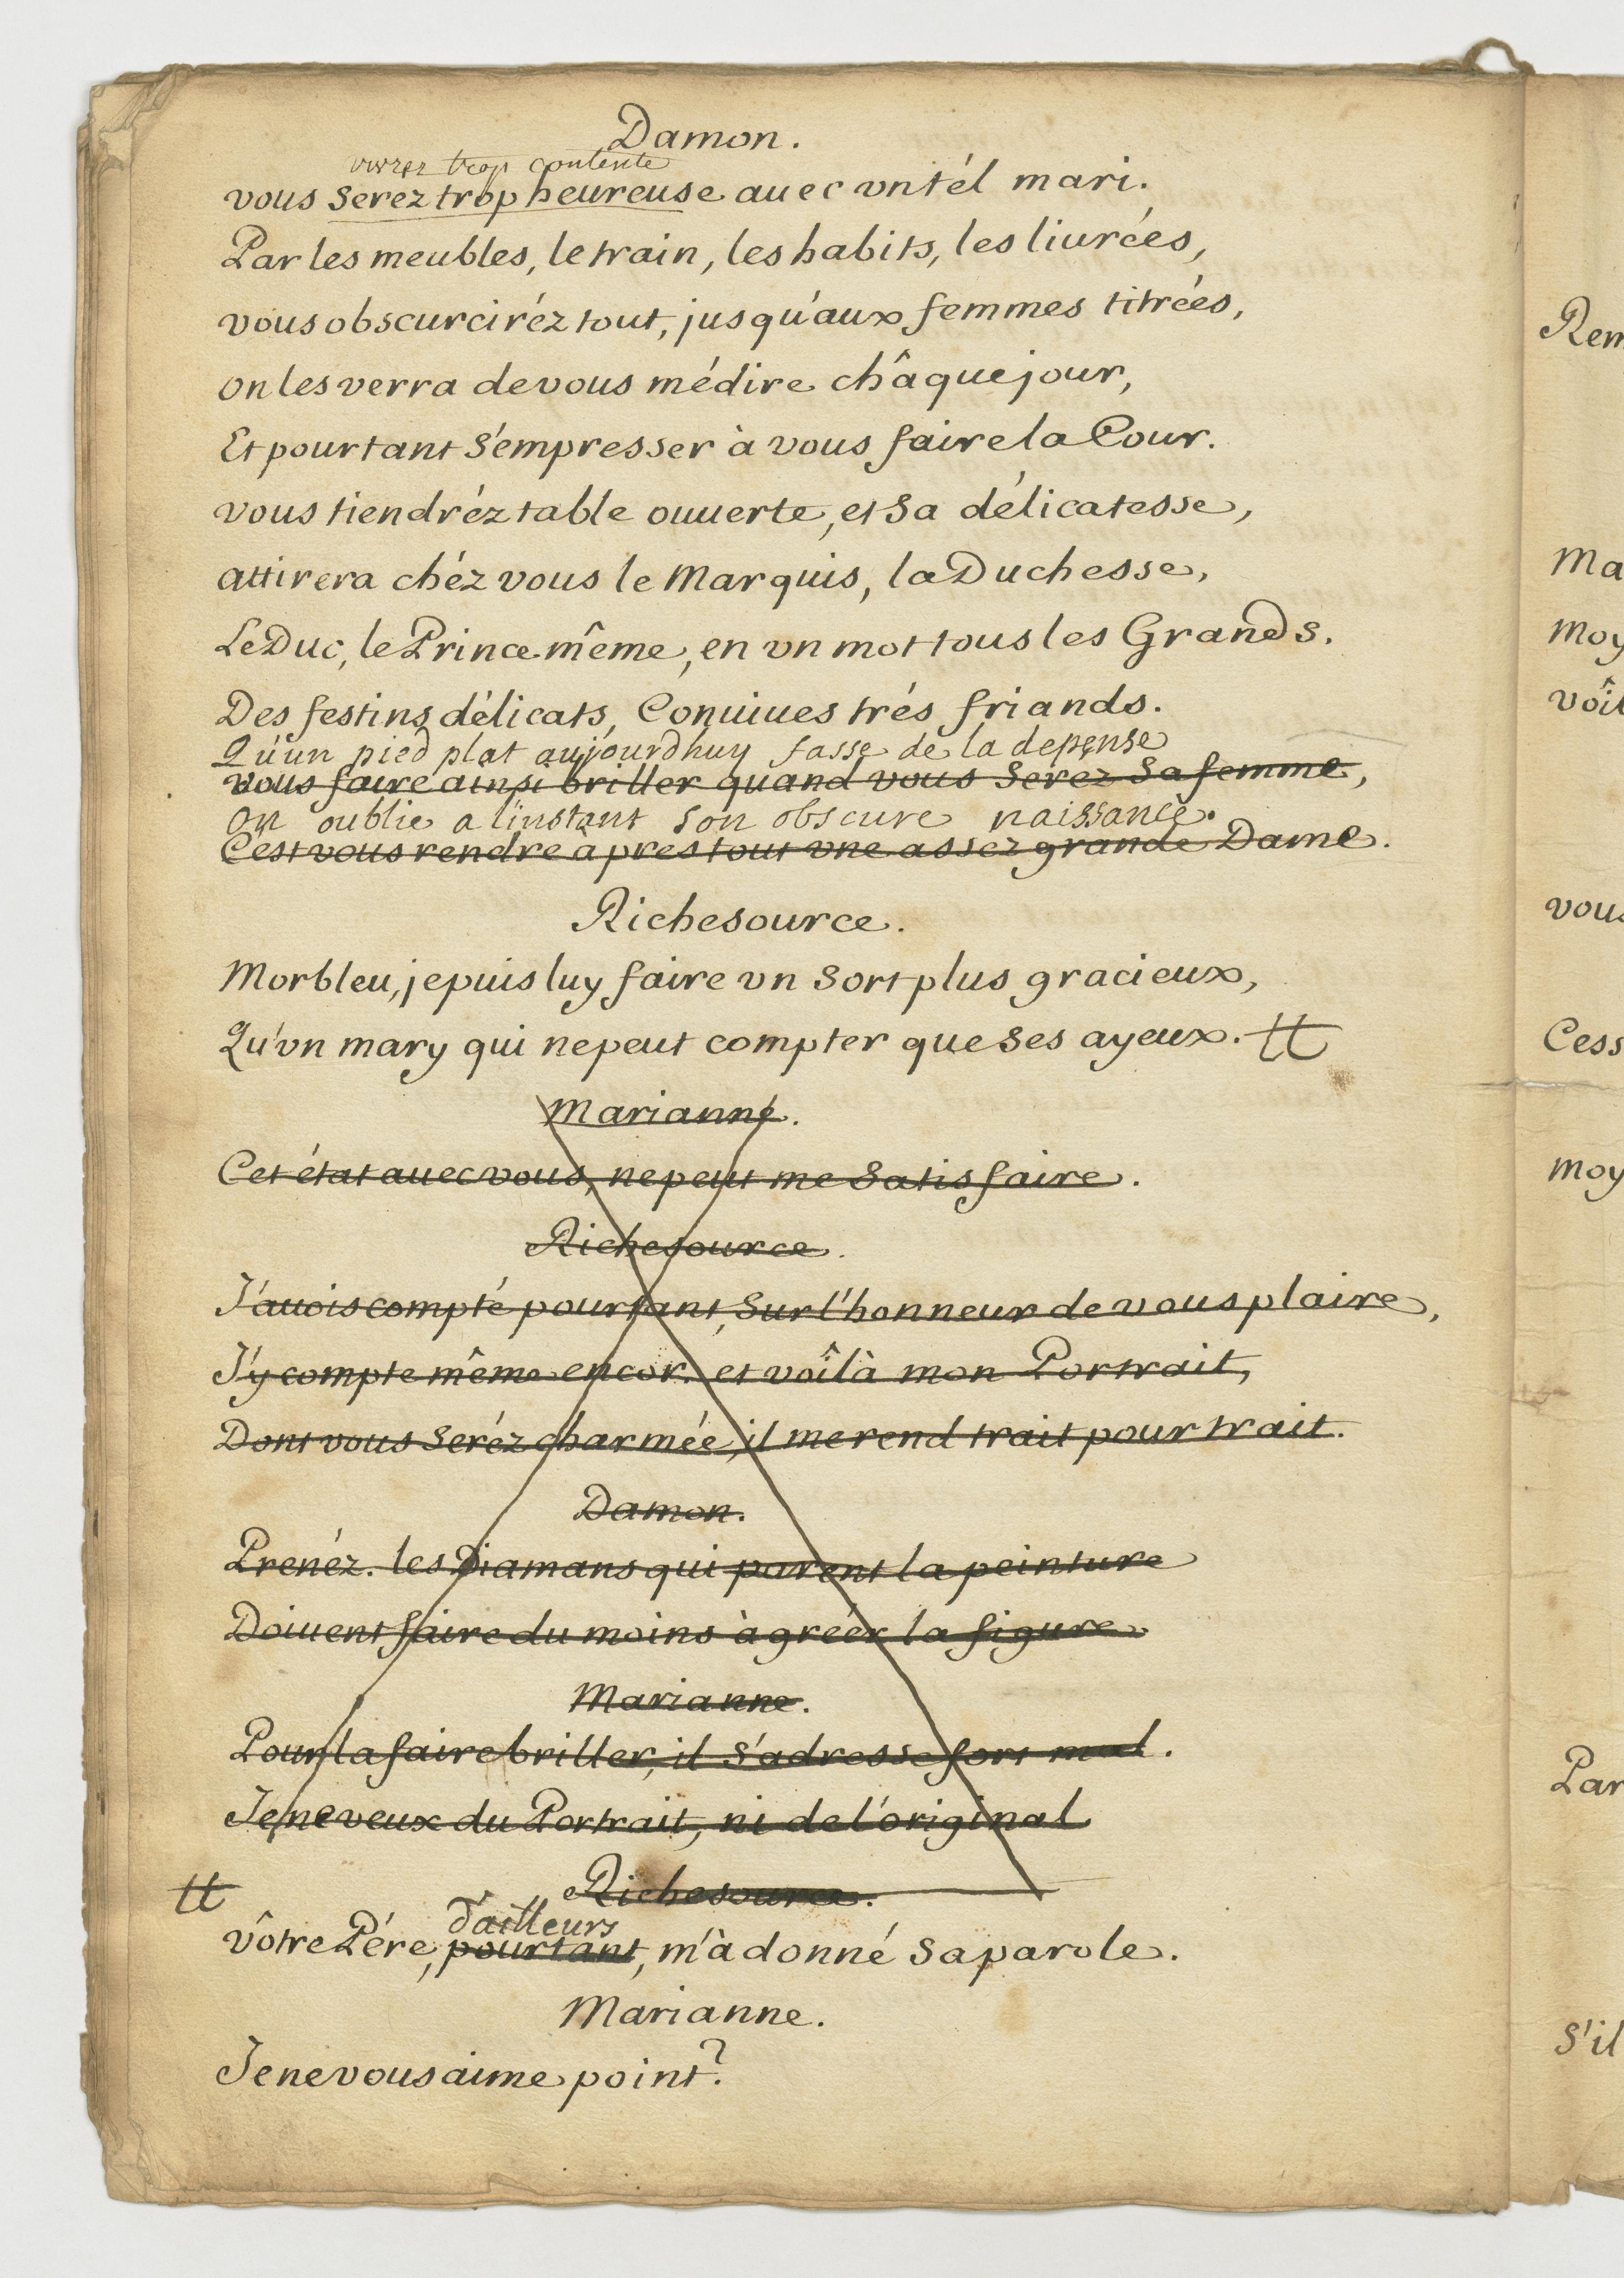 Damon.
vivrez trop contente
vous Serez trop heureuse auec vn tél mari.
Par les meubles, le train, les habits, les liurées,
vous obscurciréz tout, jusqu'aux femmes titrées,
on les verra de vous médire châque jour,
Et pourtant S'empresser à vous faire la Cour.
vous tiendréz table ouuerte, et Sa délicatesse,
attirera chéz vous le Marquis, la Duchesse,
Le Duc, le Prince même, en vn mot tous les Grands.
Des festins délicats, Conuiues trés friands.
Qu'un pied plat aujourdhuy fasse de la depense
vous faire ainsi briller quand vous Serez Sa femme,
on oublie a l'instant son obscure naissance.
C'est vous rendre àpres tout vne assez grande Dame.
Richesource.
Morbleu, je puis luy faire vn Sort plus gracieux,
Qu'vn mary qui ne peut compter que Ses ayeux. tt
Marianne.
Cet état auec vous, ne peut me Satisfaire.
Richesource.
J'auois compté pourtant, Sur l'honneur de vous plaire,
J'y compte même encor. et voîlà mon Portrait,
Dont vous Seréz charmée, il me rend trait pour trait.
Damon.
Prenéz. les Diamans qui parent la peinture
Doiuent faire du moins àgréér la figure
Marianne.
Pour la faire briller, il S'adresse fort mal.
Je ne veux du Portrait, ni de l'original
Richesource.
tt
d'ailleurs
vôtre Pére, pourtant, m'à donné Sa parole.
Marianne.
Je ne vous aime point?
Rem
Ma
Moy
voîl
vous
Cess
Moy
Par
S'il